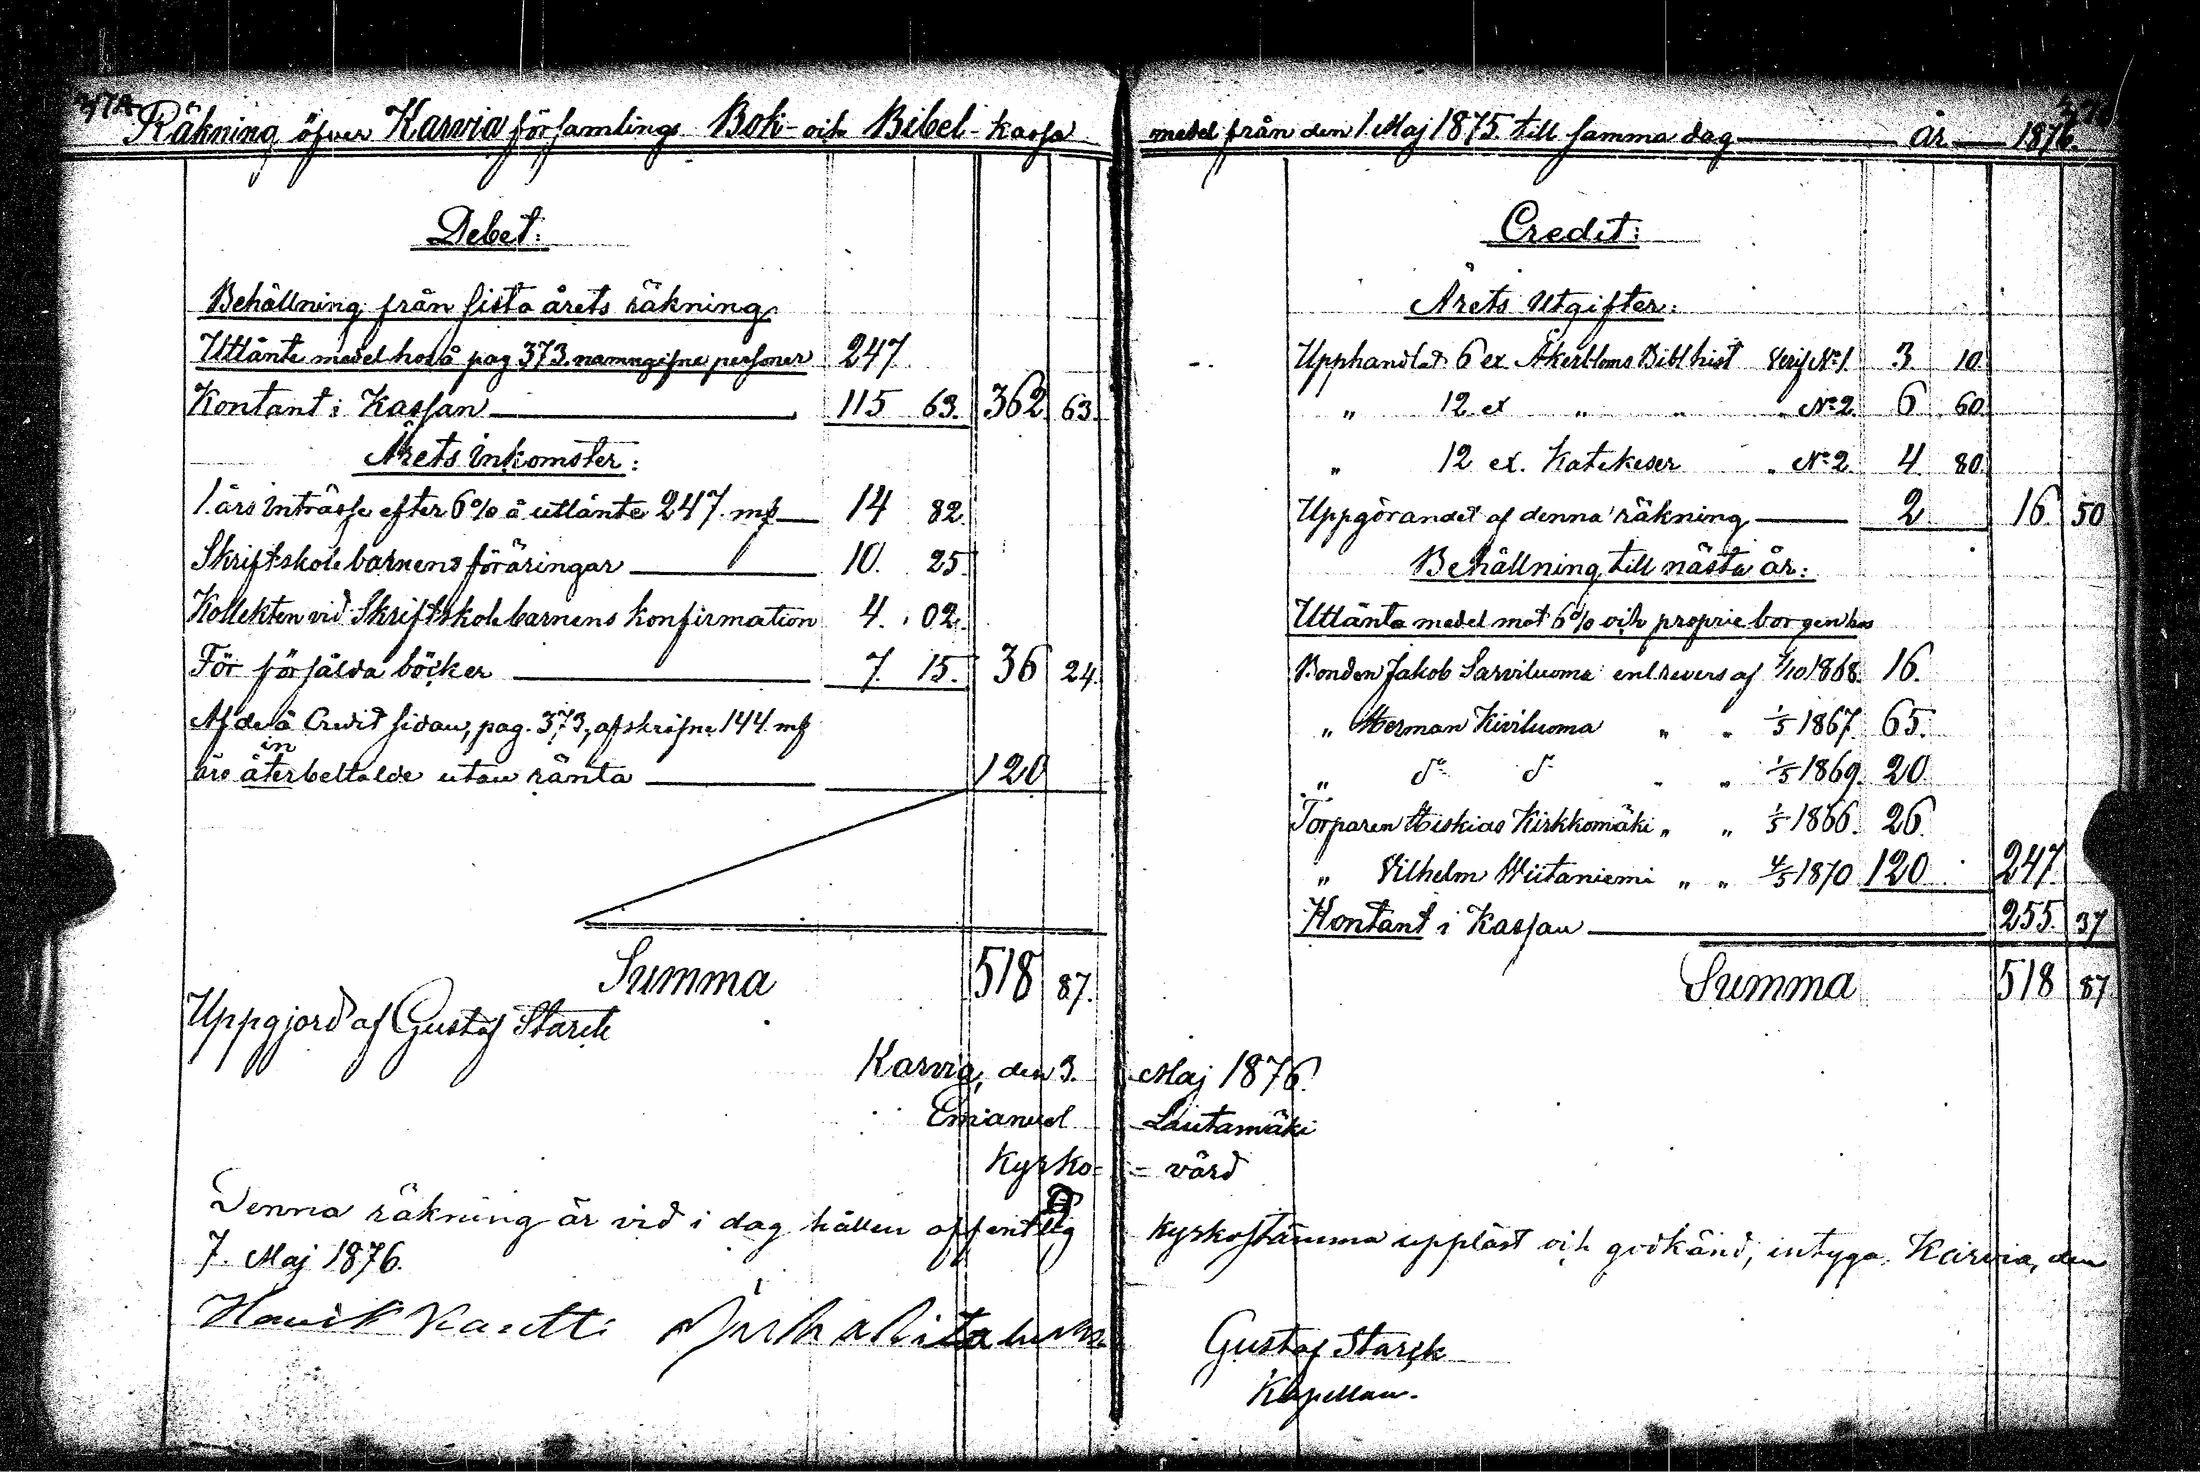 374
Räkning öfver Karvia församlings Bok- och Bibel-kassa
Debet:
Behållning från sista årets räkning
Utlånte medel hos å pag 373. namngifne personer 247
Kontant i Kassan 115 63. 362 63.
Årets inkomster:
1. års inträsse efter 6% å utlånte 247. mk 14 82.
Skriftskolebarnens föräringar 10. 25.
Kollekten vid Skriftskolebarnens konfirmation 4. 02.
För försålda böcker 7. 15. 36 24.
Af de å Credit sidan, pag. 373, afskrifne 144 mk
in
äro återbeltalde utan ränta 120
Summa 518 87.
Uppgjord af Gustaf Starck
Karvia, den 3.
Emanuel
Kyrko-
Denna räkning är vid i dag hållen offentlig
7. Maj 1876.
medel från den 1 Maj 1875 till samma dag år 1876.
Credit:
Årets Utgifter:
Upphandlat 6 ex Åkerbloms Bibl hist Verif Nº 1. 3. 10.
" 12 ex " " " Nº 2. 6 60
" 12 ex. Katekeser " Nº 2. 4. 80.
Uppgörandet af denna räkning 2 16. 50
Behållning till nästa år:
Utlånta medel mot 6% och proprie borgen hos
Bonden Jakob Sarviluoma enl revers af 1/10 1868. 16.
" Herman Kiviluoma " " 1/5 1867. 65.
" dº dº " " 1/5 1869. 20
Torparen Hiskias Kirkkomäki " " 1/5 1866. 26.
" Vilhelm Wiitaniemi " " 4/5 1870 120 247.
Kontant i Kassan 255. 37
Summa 518 87
Maj 1876.
Lautamäki
= värd
Kyrkostämma uppläst och godkänd, intyga. Karvia, den
Gustaf Starck
Kapellan.